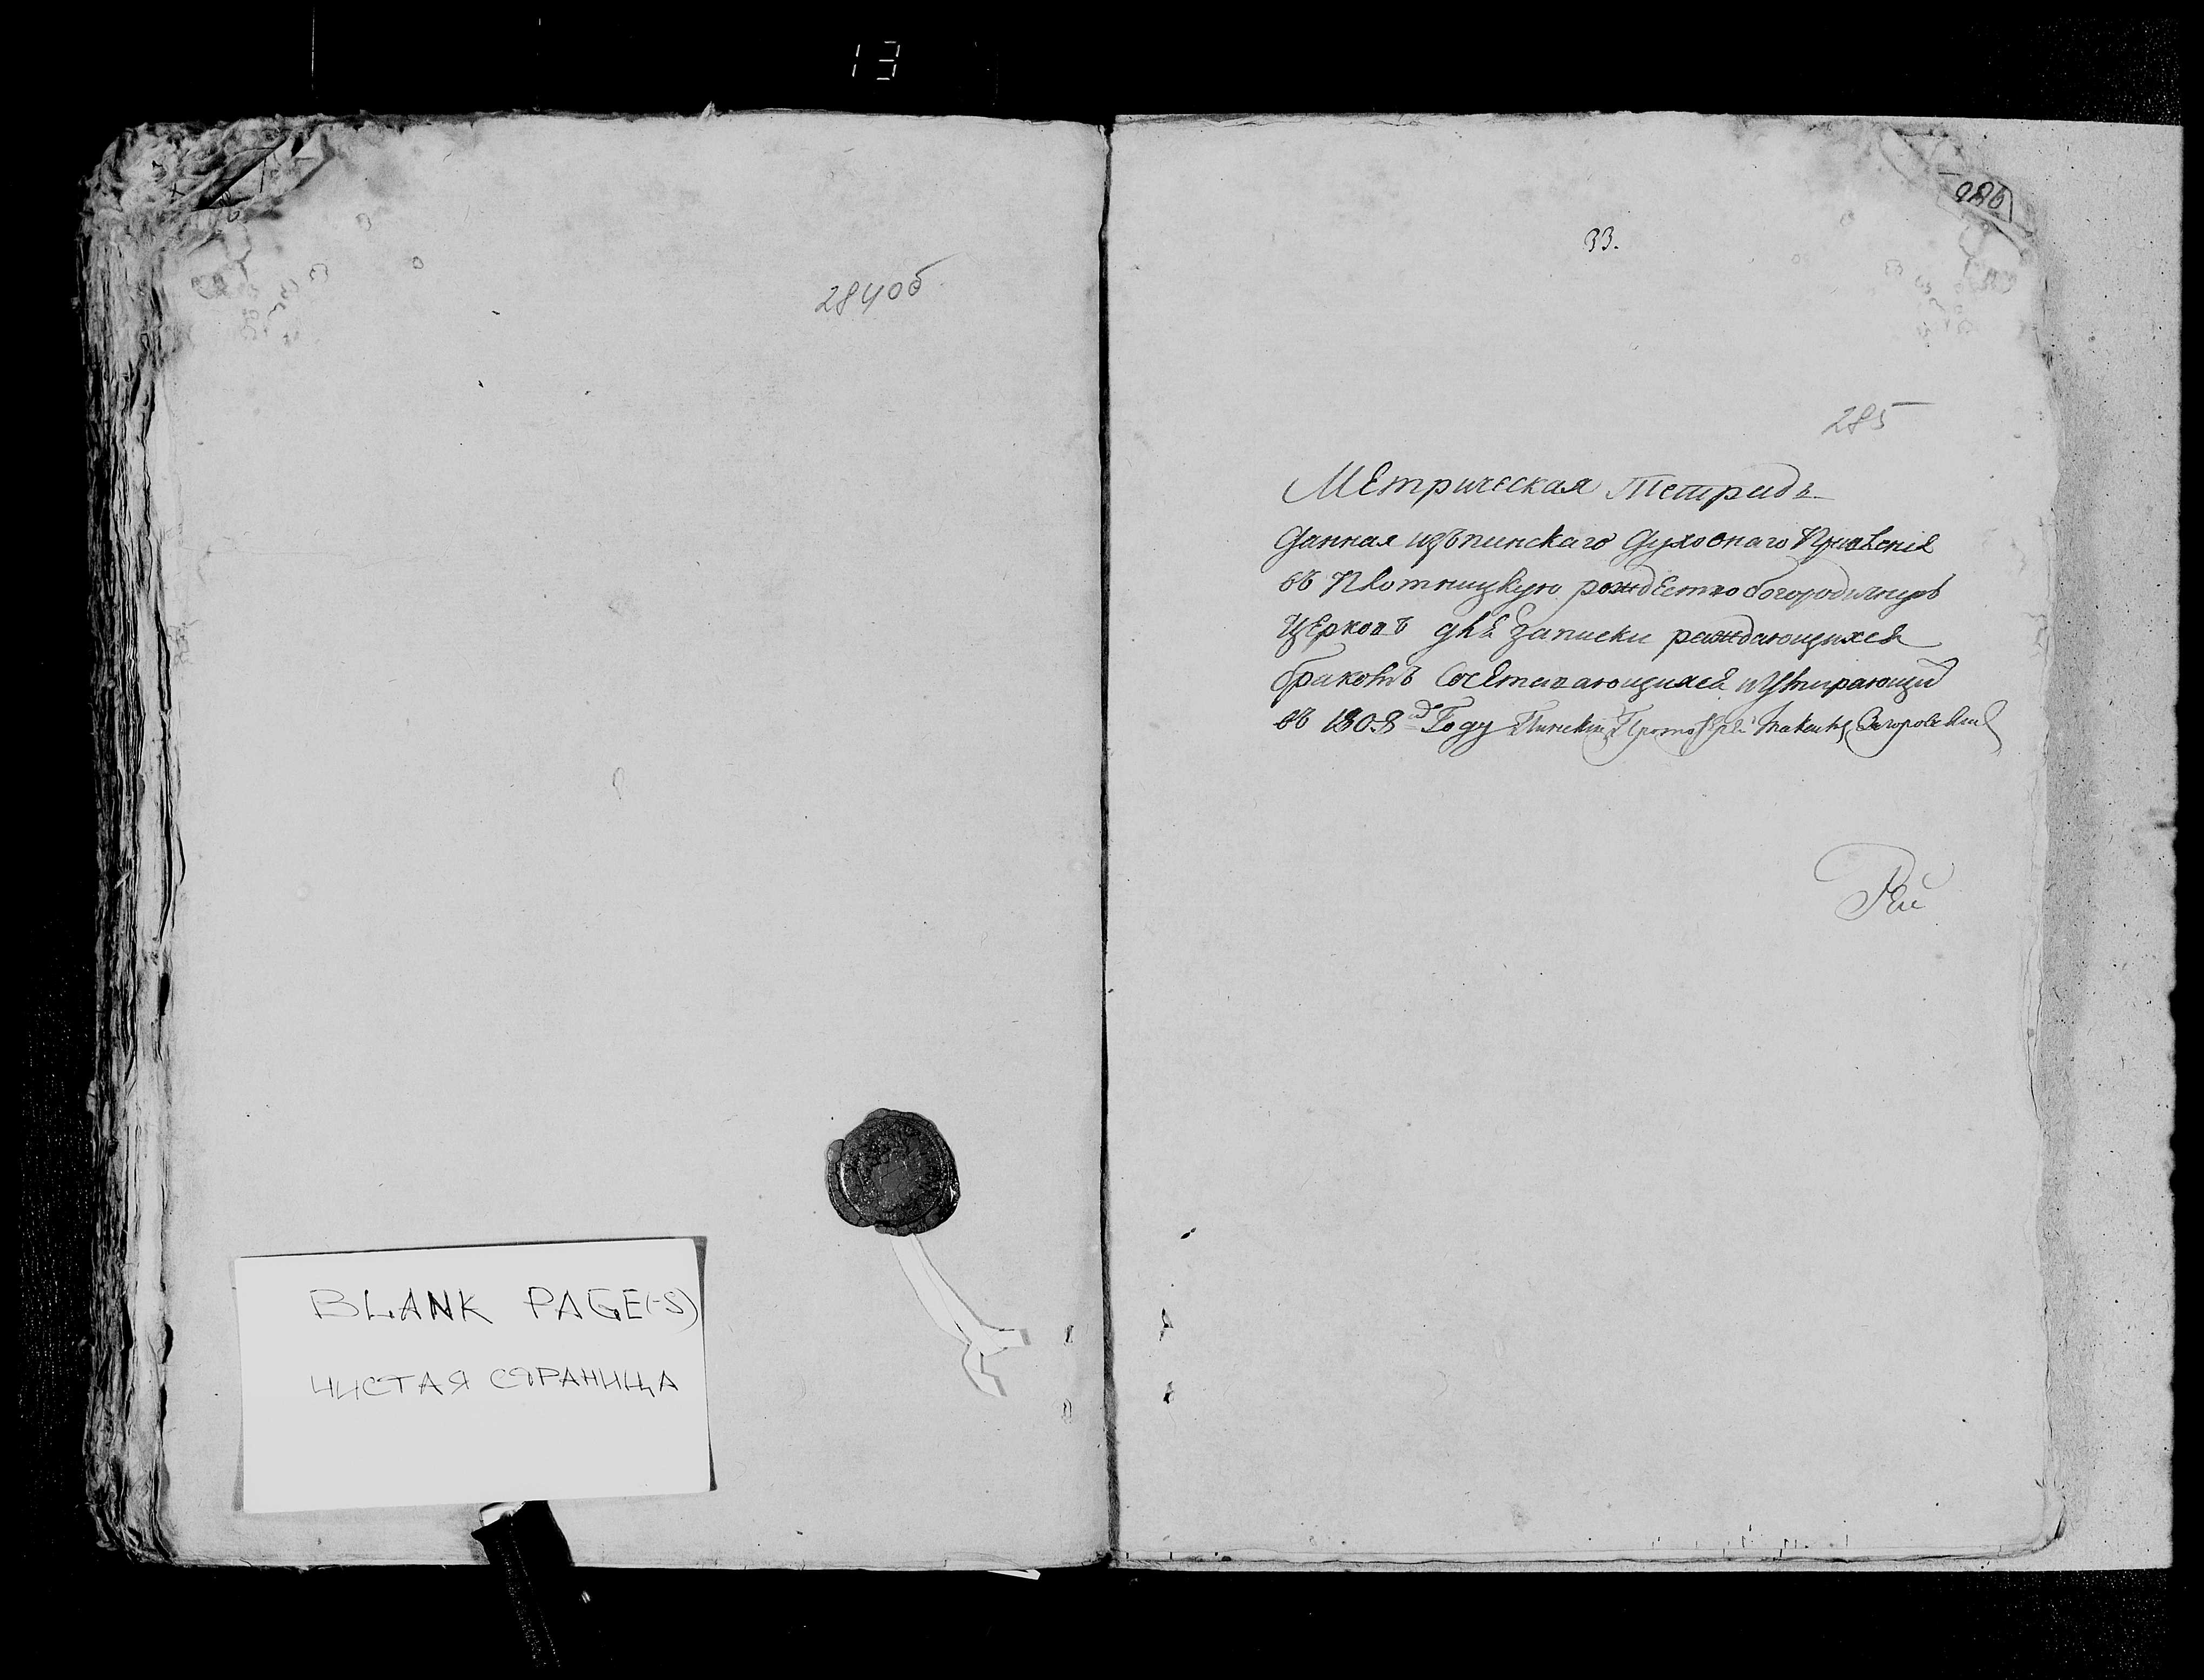 13
284об
BLANK PAGE(-S)
ЧИСТАЯ СТРАНИЦА
286
33.
285
Метрическая Тетрадь
Данная изъ пинскаго Духовнаго Правленія
въ Плотницкую рождествобогородичную
Церковъ для записки раждающихся
бракомъ Сочетавающихся и Умирающи
въ 1808 Году Пинскій Загоровскій